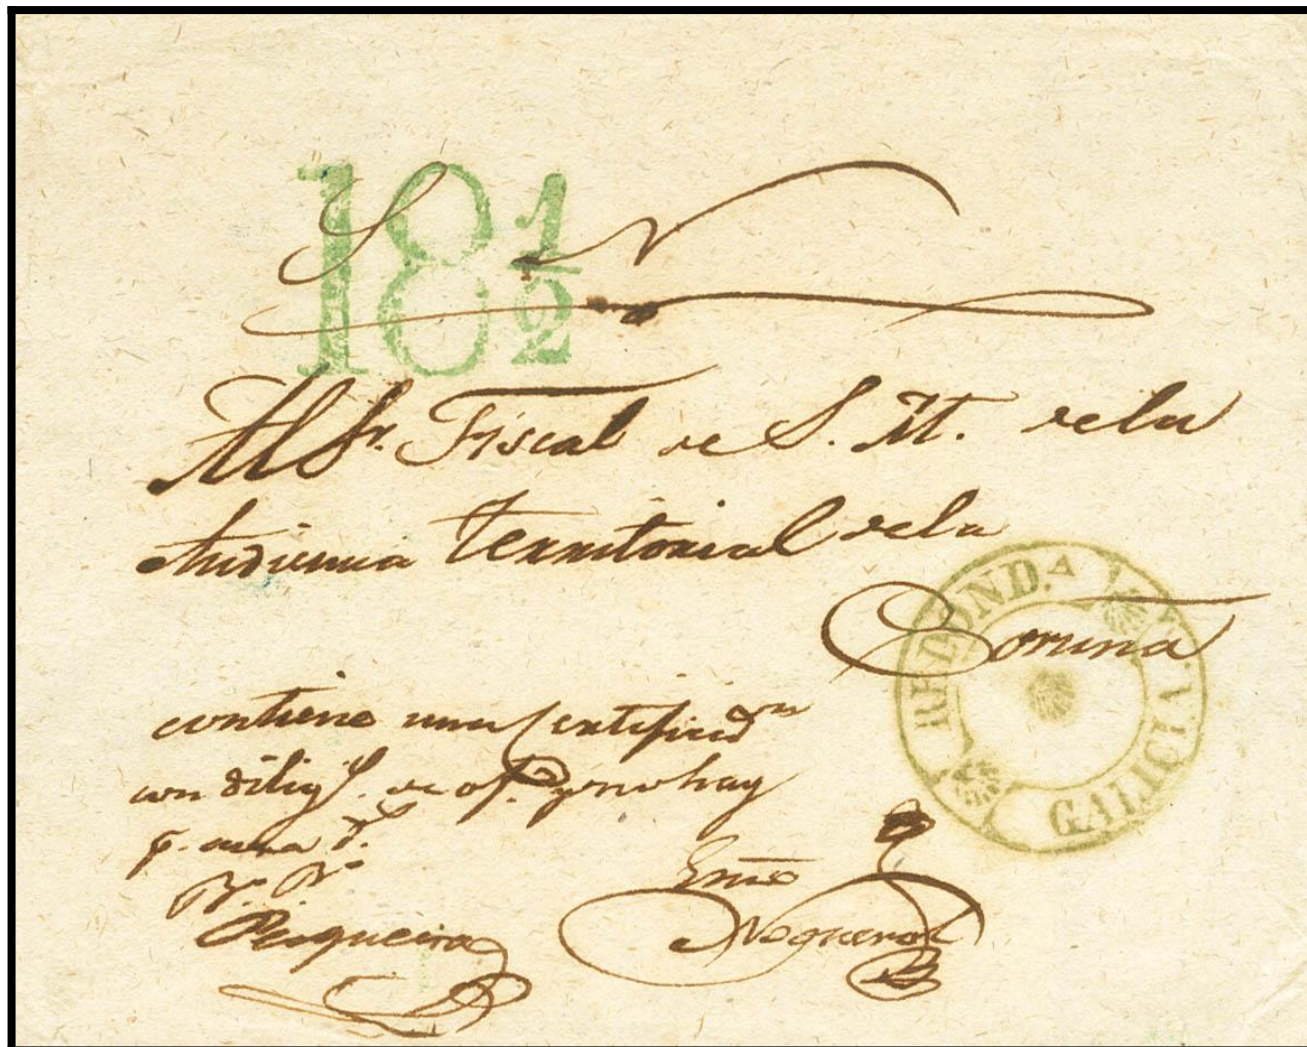 18 1/2
S N
Al Sr. Fiscal de S. M. de la
Audiencia Territorial de la
Coruna
REDOND.A
GALICIA.
contiene una Certificaon
con dilig.s de of.o y no hay
Pesqueira
Noguerol